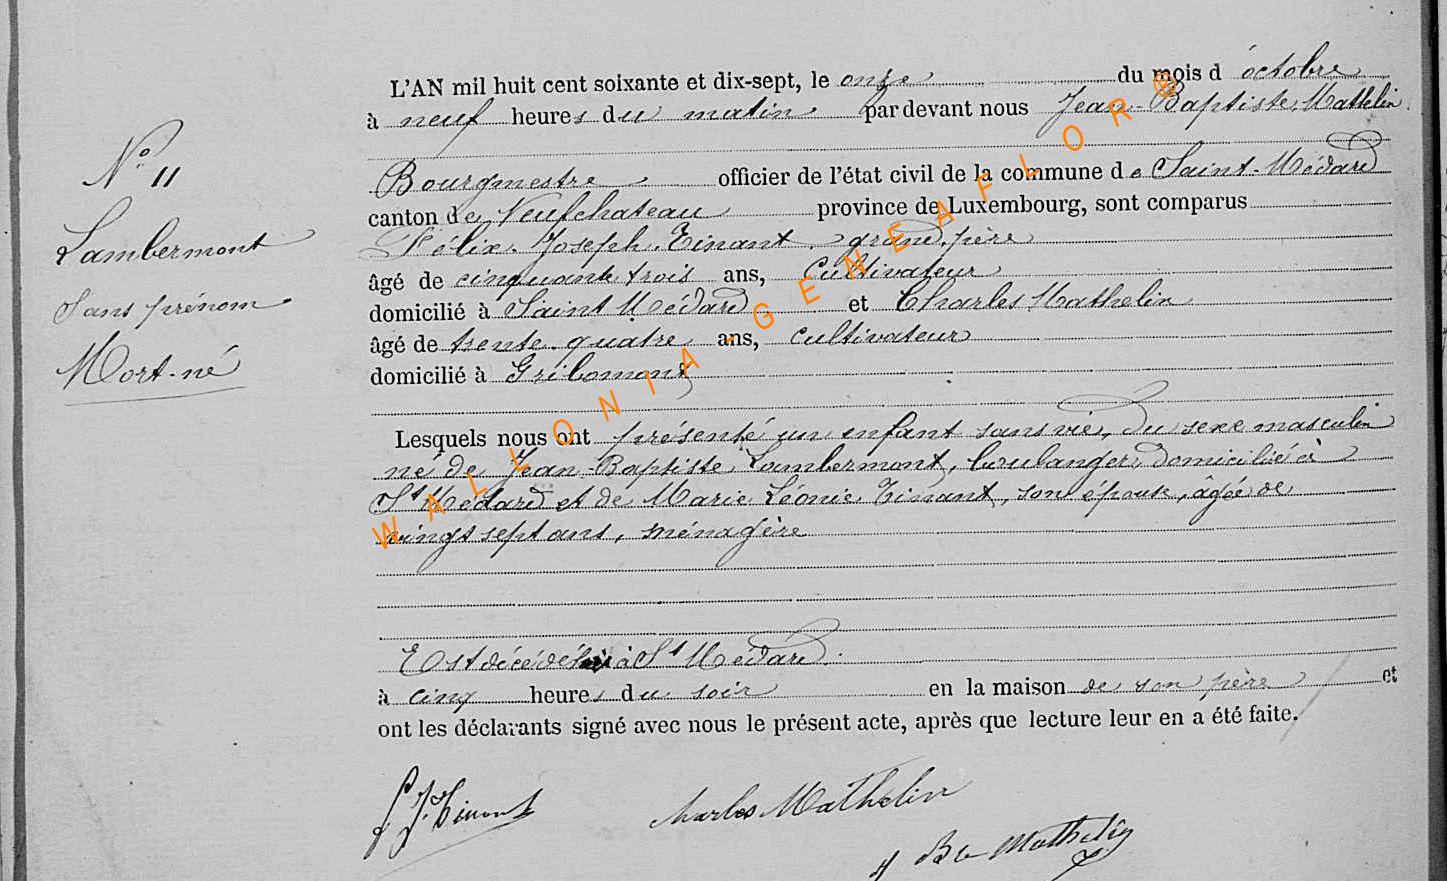 L'AN mil huit cent soixante et dix-sept, le onze du mois d'octobre
à neuf heures du matin par devant nous Jean-Baptiste Mathelin
Bourgmestre officier de l'état civil de la commune de Saint-Médard
canton de Neufchateau province de Luxembourg, sont comparus
Félix Joseph Tinant, grand-père
âgé de cinquante trois ans, Cultivateur
domicilié à Saint Médard et Charles Mathelin
âgé de trente-quatre ans, cultivateur
domicilié à Gribomont
Lesquels nous ont présenté un enfant sans vie, du sexe masculin
né de Jean-Baptiste Lambermont, boulanger, domicilié à
St Médard et de Marie Léonie Tinant, son épouse, âgée de
vingt sept ans, ménagère
Est décédé à St Médard.
à cinq heures du soir en la maison de son père et
ont les déclarants signé avec nous le présent acte, après que lecture leur en a été faite.
N° 11
Lambermont
Sans prénom
Mort-né
F. J. Tinant Charles Mathelin
J Bte Mathelin
WALLONIA-GENEAFLOR®